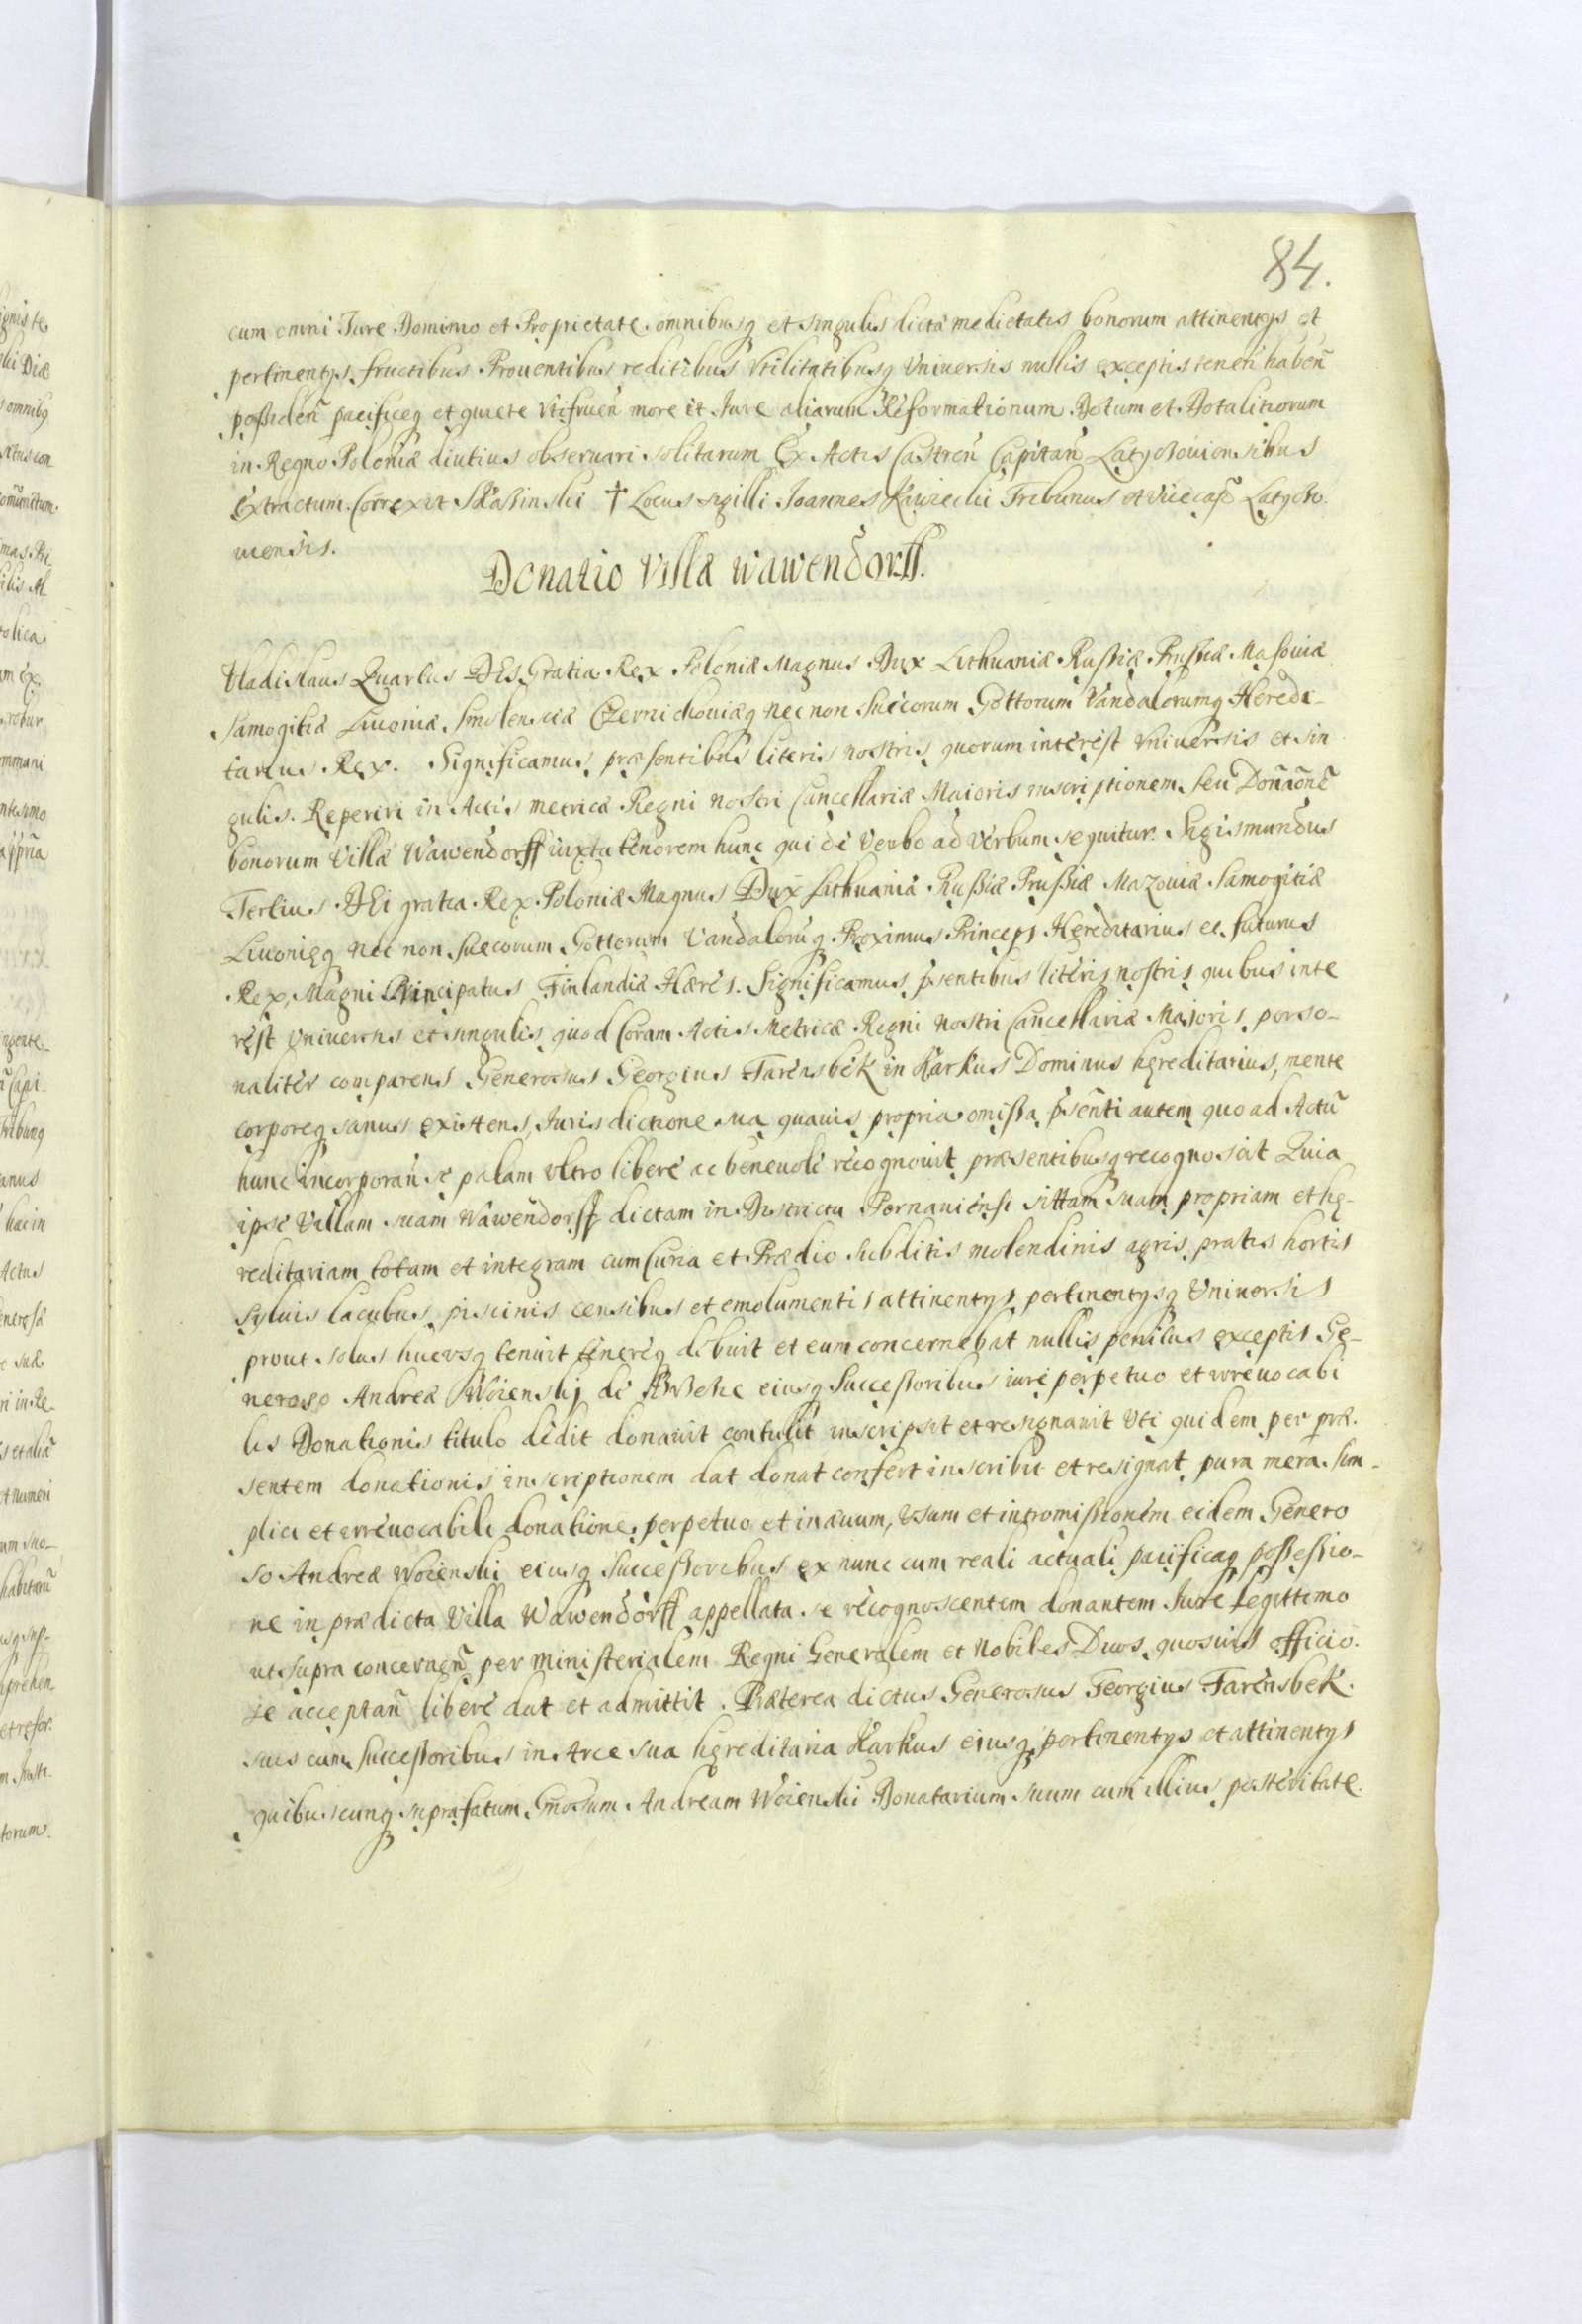 84.
cum omni Iure Dominio et Proprietate omnibusq et singulis dictæ medietatis bonorum attinentys et
pertinentys fructibus Prouentibus reditibus Vtilitatibusq Vniuersis nullis exceptis tenen̄ haben̄
possiden̄ pacificeq et quiete Vtifruen̄ more et Iure aliarum Reformationum Dotum et Dotalitiorum
in Regno Poloniæ diutius obseruari solitarum Ex Actis Castren̄ Capitan̄ Latyczouiensibus
extractum. Correxit Skassinski † Locus sigilli Joannes Kawiecki Tribunus et Vicecap̄ Latyczo-
uiensis.
Donatio Villæ Wawendorff.
Vladislaus Quartus DEI Gratia Rex Poloniæ Magnus Dux Lithuaniæ Russiæ Prussiæ Masouiæ
Samogitiæ Liuoniæ Smolensciæ Czernichouiæq nec non Suecorum Gottorum Vandalorumq Heredi-
tarius Rex. Significamus præsentibus literis nostris quorum interest Vniuersis et sin
gulis. Reperiri in Actis metricæ Regni nostri Cancellariæ Maioris inscriptionem seu Dona͠one͠
bonorum Villæ Wawendorff iuxta tenorem hunc qui de Verbo ad Verbum sequitur. Sigismundus
Tertius DEi gratia Rex Poloniæ Magnus Dux Lithuaniæ Russiæ Prussiæ Mazouiæ Samogitiæ
Liuonięq nec non Suecorum Gottorum Vandaloru͠q Proximus Princeps Hęreditarius et futurus
Rex, Magni Principatus Finlandiæ Hæres. Significamus p͠sentibus literis nostris quibus inte
rest Vniuersis et singulis quod Coram Actis Metricæ Regni nostri Cancellariæ Maioris perso-
naliter comparens Generosus Georgius Farensbek in Karkus Dominus hęreditarius, mente
corporeq sanus existens, Iurisdictione sua quauis propria omissa p͠senti autem quo ad Actu͠
hunc incorporan̄ se palam vltro libere ac beneuole recognouit præsentibusq recognoscit Quia
ipse Villam suam Wawendorff dictam in Districtu Pernauiensi sittam suam propriam et hę-
reditariam totam et integram cum Curia et Prædio Subditis molendinis agris pratis hortis
syluis lacubus piscinis censibus et emolumentis attinentys pertinentysq Vniuersis
prout solus hucvsq tenuit tenereq debuit et eum concernebat nullis penitus exceptis Ge-
neroso Andreæ Woienskj de eiusq Successoribus iure perpetuo et irreuocabi
lis Donationis titulo dedit donauit contulit inscripsit et resignauit Vti quidem per præ-
sentem donationis inscriptionem dat donat confert inscribit et resignat pura mera sim-
plici et irreuocabili donatione perpetuo et in æuum, Vsum et intromissionem eidem Genero
so Andreæ Woienski eiusq Successoribus ex nunc cum reali actuali pacificaq possessio-
ne in prædicta Villa Wawendorff appellata se recognoscentem donantem Iure Legittimo
ut supra concernen̄ per ministerialem Regni Generalem et Nobiles Duos quosuis officio-
se acceptan̄ libere dat et admittit. Præterea dictus Generosus Georgius Farensbek
suis cum Successoribus in Arce sua hęreditaria Karkus eiusq pertinentys et attinentys
quibuscunq suprafatum Gn͠osum Andream Woienski Donatarium suum cum illius posteritate.